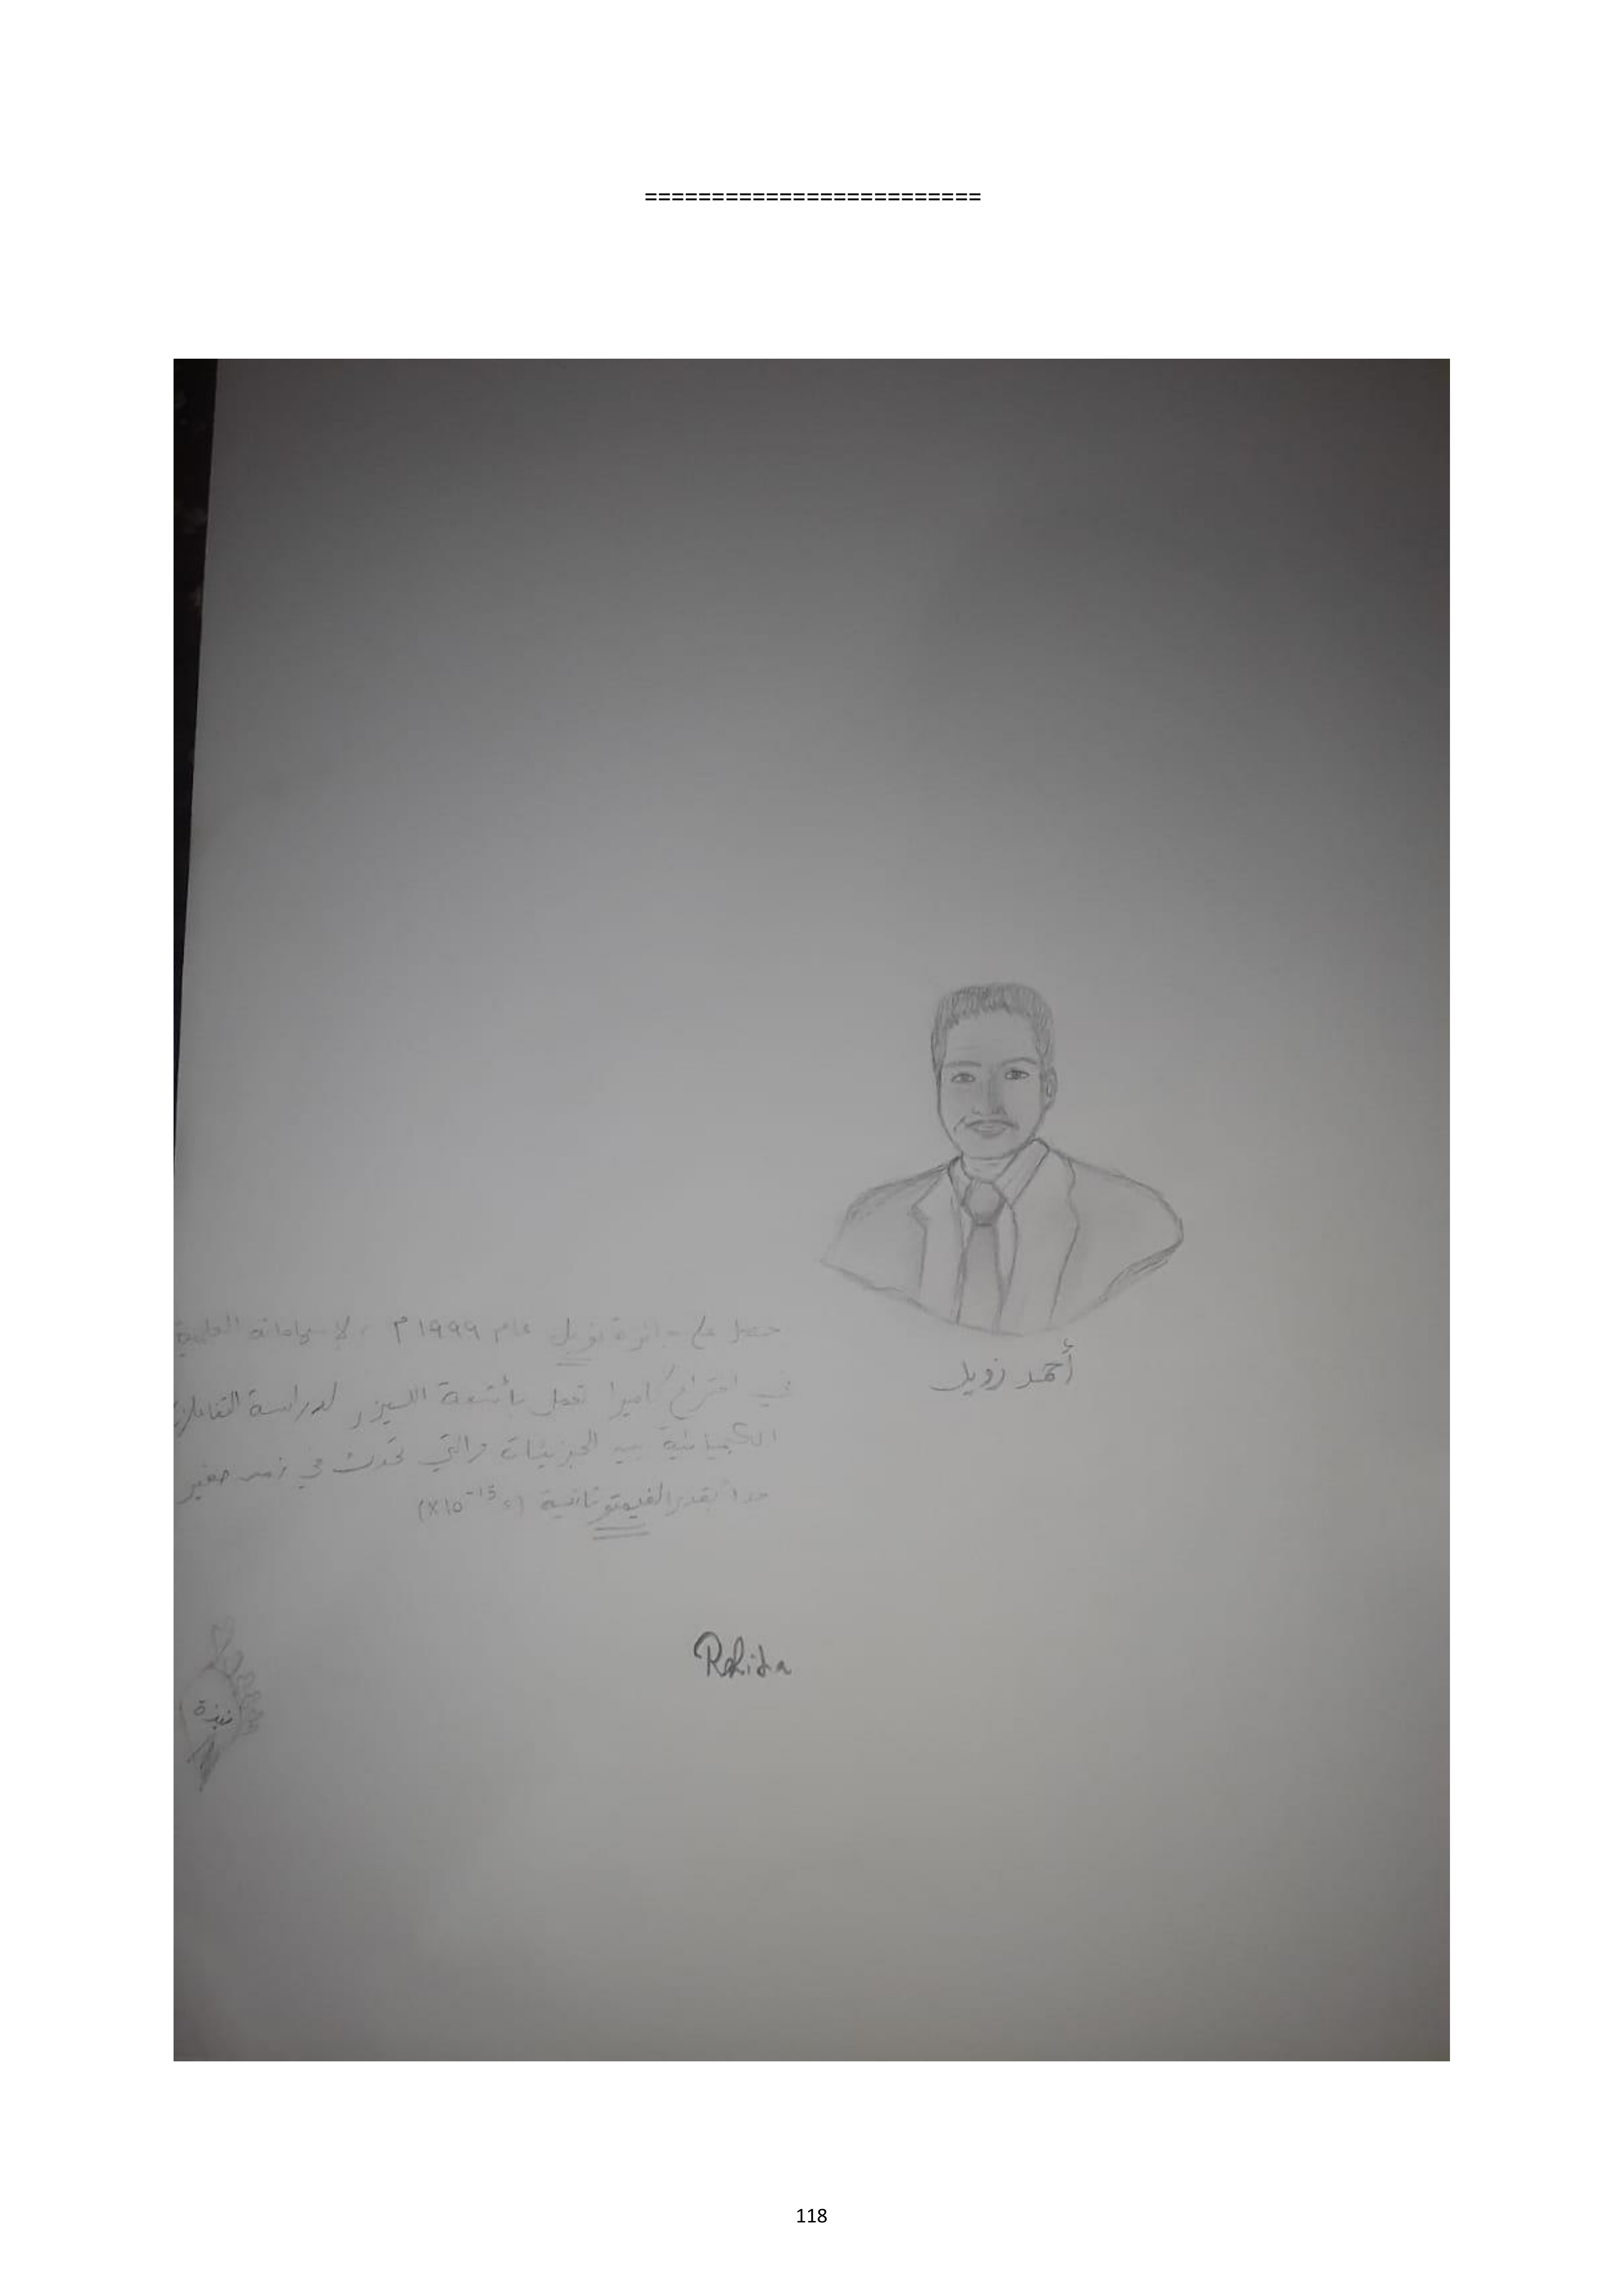 =========================
أحمد زويل
حصل على جائزة نوبل عام ١٩٩٩ م ، لإسهاماته العلمية
في اختراع كاميرا تعمل بأشعة الليزر لدراسة التفاعلات
الكيميائية بين الجزيئات والتي تحدث في زمن صغير
جدا بقدر الفيمتو ثانية (x10⁻¹⁵ s)
نبذة
118